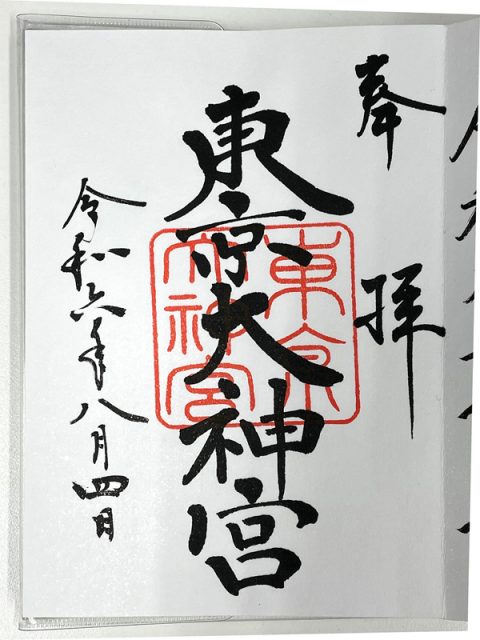 奉拝
東京大神宮
東京
大神宮
令和六年八月四日